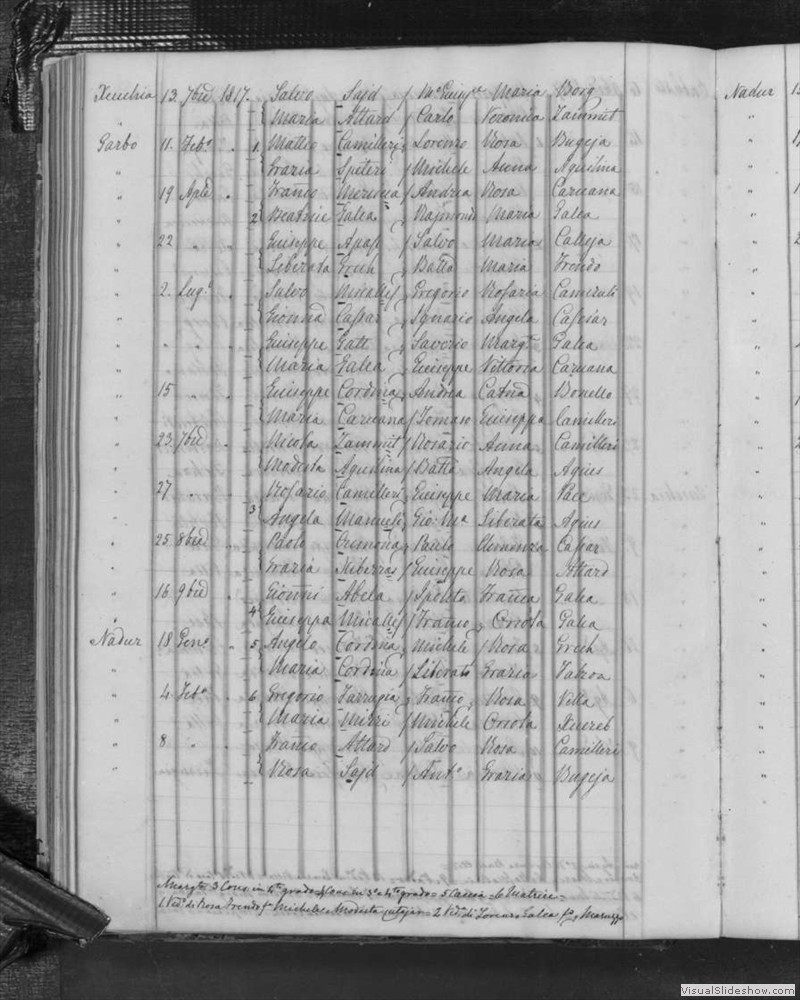 Xeuchia 13. 7bre 1817. Salvo Sajd / Maria Borg Nadur
" Maria Attard / Carlo Veronica Zammit "
Garbo 11. Feb.° " 1. Matteo Camilleri, Lorenzo Rosa Bugeja "
" Grazia Spiteri / Michele Anna Aquilina "
" 19 Aple " Franco / Andrea Rosa Caruana "
" 2 Beatrice Galea , Rajmondo Maria Galea "
" 22 " " Giuseppe Apap / Salvo Maria Calleja "
" Liberata Grech , Batta Maria Frendo "
" 2. Lug.° " Salvo Micallef, Gregorio Rosaria Camenzuli "
" Gionna Cassar , Ignazio Angela Cassar "
" " " " Giuseppe Gatt , Saverio Marg.ta Galea "
" Maria Galea , Giuseppe Vittoria Caruana "
" 15 " " Giuseppe Cordina, Andrea Catna Bonello "
" Maria Caruana / Tomaso Giuseppa Camilleri "
" 23. 7bre " Nicola Zammit / Rosario Anna Camilleri "
" Modesta Aquilina / Batta Angela Agius "
" 27 " " Rosario Camilleri, Giuseppe Maria Pace "
" 3 Angela Manueli, Gio: Ma Liberata Agius "
" 25 8bre " Paolo Cremona, Paulo Clemenza Cassar "
" Grazia Xiberras / Giuseppe Rosa Attard "
" 16. 9bre " Gionni Abela / Franca Galea "
" 4 Giuseppa Micallef / Franco , Orsola Galea "
Nadur 18 Gen.° " 5 Angelo Cordina, Michele / Rosa Grech "
" Maria Cordina / Liberato Grazia "
" 4 Feb.° " 6 Gregorio Farrugia , Franco , Rosa Vella "
" Maria Mizzi / Michele Orsola Xuereb "
" 8 " " Franco Attard / Salvo Rosa Camilleri "
" Rosa Sajd / Ant.° Grazia Bugeja
3 Cons. in 4to grado 4 Cons. in 3° e 4to grado = 5 = 6 Matrice =
1 Ved.° di Rosa Frendo f.a Michele e Modesta Cutajar = 2 Ved.a di Lorenzo Galea
VisualSlideshow.com